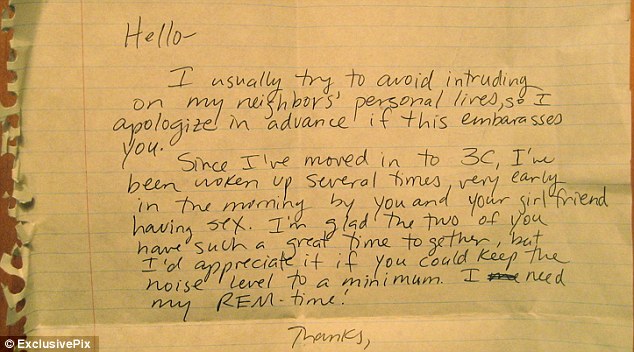 Hello-
I usually try to avoid intruding
on my neighbors' personal lives, so I
apologize in advance if this embarasses
you.
Since I've moved in to 3C, I've
been woken up several times, very early
in the morning by you and your girlfriend
having sex. I'm glad the two of you
have such a great time together, but
I'd appreciate it if you could keep the
noise level to a minimum. I need
my REM-time!
Thanks,
© ExclusivePix